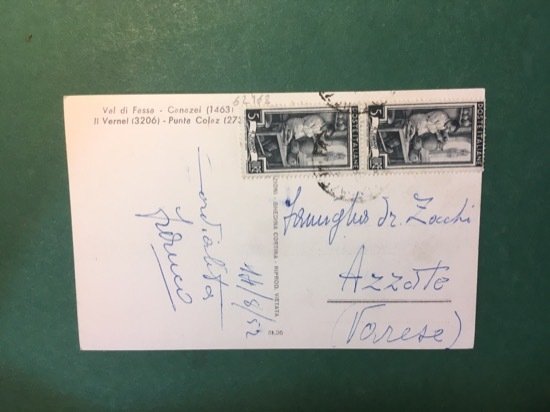 Val di Fassa - Canazei (1463)
Il Vernel (3206) - Punta Colaz (27
5 POSTE ITALIANE
5 POSTE ITALIANE
Cordialità
Franco
14/8/52
GHEDINA CORTINA - RIPROD. VIETATA
Famiglia dr. Zocchi
Azzate
(Varese)